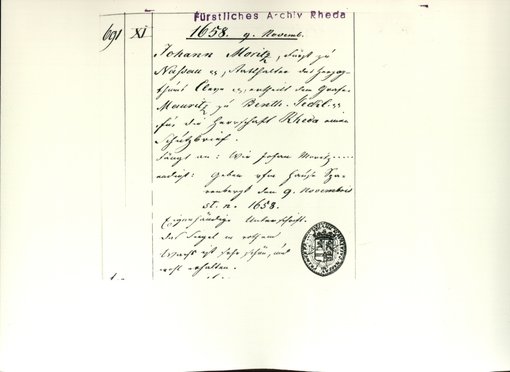 Fürstliches Archiv Rheda
691 XI 1658. 9. Novemb.
Johann Moritz, Fürst zu
Nassau, Statthalter des Herzog-
thums Cleve, ertheilt dem Grafen
Mauritz zu Benth. Teckl.
für die Herrschaft Rheda einen
Schutzbrief.
Fängt an: Wir Johan Moritz.....
endigt: Geben
den 9. Novembris
st. n. 1658.
Eigenhändige Unterschrift.
Das Siegel in rothem
Wachs ist sehr schön, und
wohl erhalten.